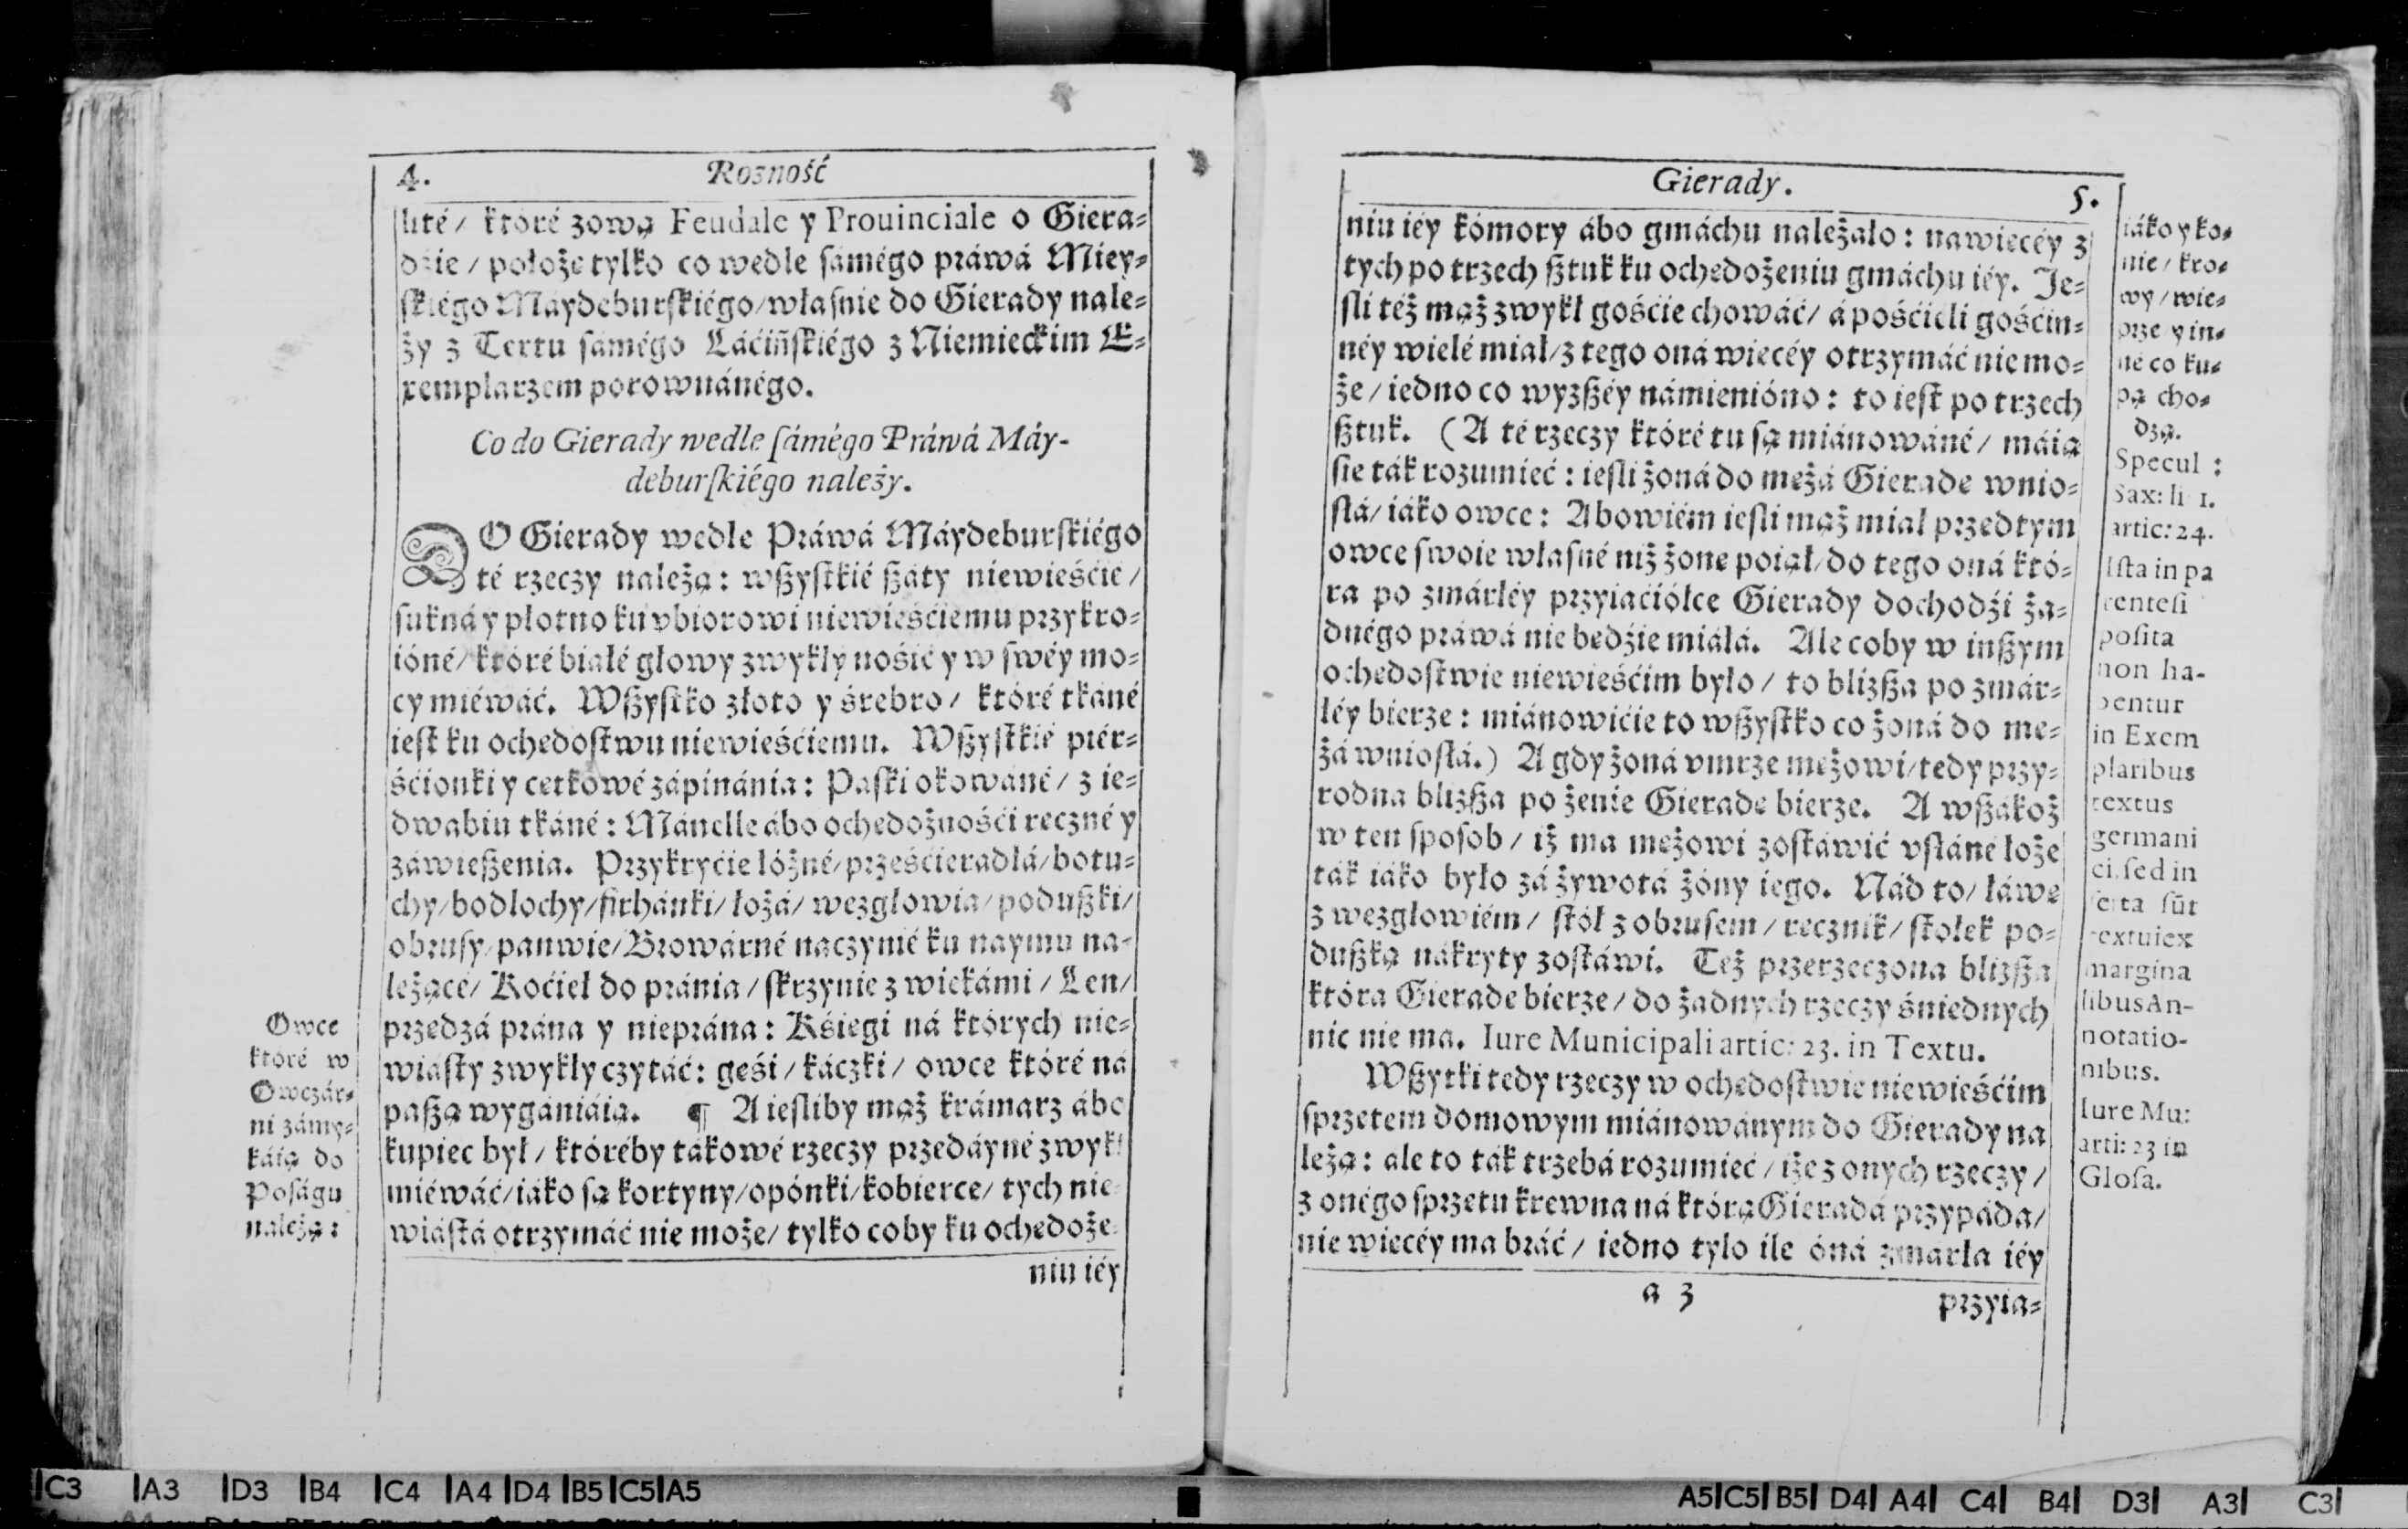 4. Rozność
lité/ któré zową Feudale y Prouinciale o Giera-
dźie/ położę tylko co wedle sámégo práwá Miey-
skiégo Máydeburskiégo/ własnie do Gierady nale-
ży z Textu sámégo Láćińskiégo z Niemieckim E-
xemplarzem porownánégo.
Co do Gierady wedle sámégo Práwá Máy-
deburskiégo należy.
DO Gierady wedle Práwá Máydeburskiégo
té rzeczy należą: wszystkié száty niewieśćié/
sukná y płotno ku vbiorowi niewieśćiemu przykro-
ióné/ któré białé głowy zwykły nośić y w swéy mo-
cy miéwáć. Wszystko złoto y śrebro/ któré tkáné
iest ku ochędostwu niewieśćiemu. Wszystkié piér-
śćionki y cetkowé zápinánia: Paski okowáné/ z ie-
dwabiu tkáné: Mánelle ábo ochędożnośći ręczné y
záwieszenia. Przykryćie łóżné/ prześćieradłá/ botu-
chy/ bodlochy/ firhánki/ łożá/ wezgłowia/ poduszki/
obrusy/ panwie/ Browárné naczynié ku naymu na-
leżącé/ Koćieł do pránia/ skrzynie z wiekámi/ Len/
przędzá prána y nieprána: Kśięgi ná których nie-
wiásty zwykły czytáć: gęśi/ káczki/ owce któré ná
paszą wygániáią. ¶ A iesliby mąż krámarz ábo
kupiec był/ któréby tákowé rzeczy przedáyné zwykł
miéwáć/ iáko są kortyny/ opónki/ kobierce/ tych nie-
wiástá otrzymáć nie może/ tylko coby ku ochędoże-
niu iéy
Owce
któré w
Owczár-
ni zámy-
káią do
Poságu
należą:
Gierady. 5.
niu iéy kómory ábo gmáchu należało: nawięcéy z
tych po trzech sztuk ku ochędożeniu gmáchu iéy. Je-
sli téż mąż zwykł gośćie chowáć/ á pośćieli gośćin-
néy wielé miał/ z tego oná więcéy otrzymáć nie mo-
że/ iedno co wyzszéy námienióno: to iest po trzech
sztuk. (A té rzeczy któré tu są miánowáné/ máią
się ták rozumieć: iesli żoná do mężá Gieradę wnio-
słá/ iáko owce: Abowiém iesli mąż miał przedtym
owce swoie własné niż żonę poiął/ do tego oná któ-
ra po zmárłéy przyiaćiółce Gierady dochodźi ża-
dnégo práwá nie będźie miáłá. Ale coby w inszym
ochędostwie niewieśćim było/ to blizsza po zmár-
łéy bierze: miánowićie to wszystko co żoná do mę-
żá wniosłá.) A gdy żoná vmrze mężowi/ tedy przy-
rodna blizsza po żenie Gieradę bierze. A wszákoż
w ten sposob/ iż ma mężowi zostáwić vsłáné łoże
ták iáko było zá żywotá żóny iego. Nád to/ łáwę
z wezgłowiém/ stół z obrusem/ ręcznik/ stołek po-
duszką nákryty zostáwi. Też przerzeczona blizsza
która Gieradę bierze/ do żadnych rzeczy śniednych
nic nie ma. Iure Municipali artic: 23. in Textu.
Wszytki tedy rzeczy w ochędostwie niewieśćim
sprzętem domowym miánowánym do Gierady na
leżą: ale to ták trzebá rozumieć/ iże z onych rzeczy/
z onégo sprzętu krewna ná którą Gieradá przypáda/
nie więcéy ma bráć/ iedno tylo ile óná zmarła iéy
a 3 przyia-
iáko y ko-
nie/ kro-
wy/ wie-
prze y in-
né co ku-
pą cho-
dzą.
Specul:
Sax: li 1.
artic: 24.
Ista in pa
rentesi
posita
non ha-
bentur
in Exem
plaribus
textus
germani
ci, sed in
serta sūt
textui ex
margina
libus An-
notatio-
nibus.
Iure Mu:
arti: 23 in
Glosa.
C3 A3 D3 B4 C4 A4 D4 B5 C5 A5
A5 C5 B5 D4 A4 C4 B4 D3 A3 C3